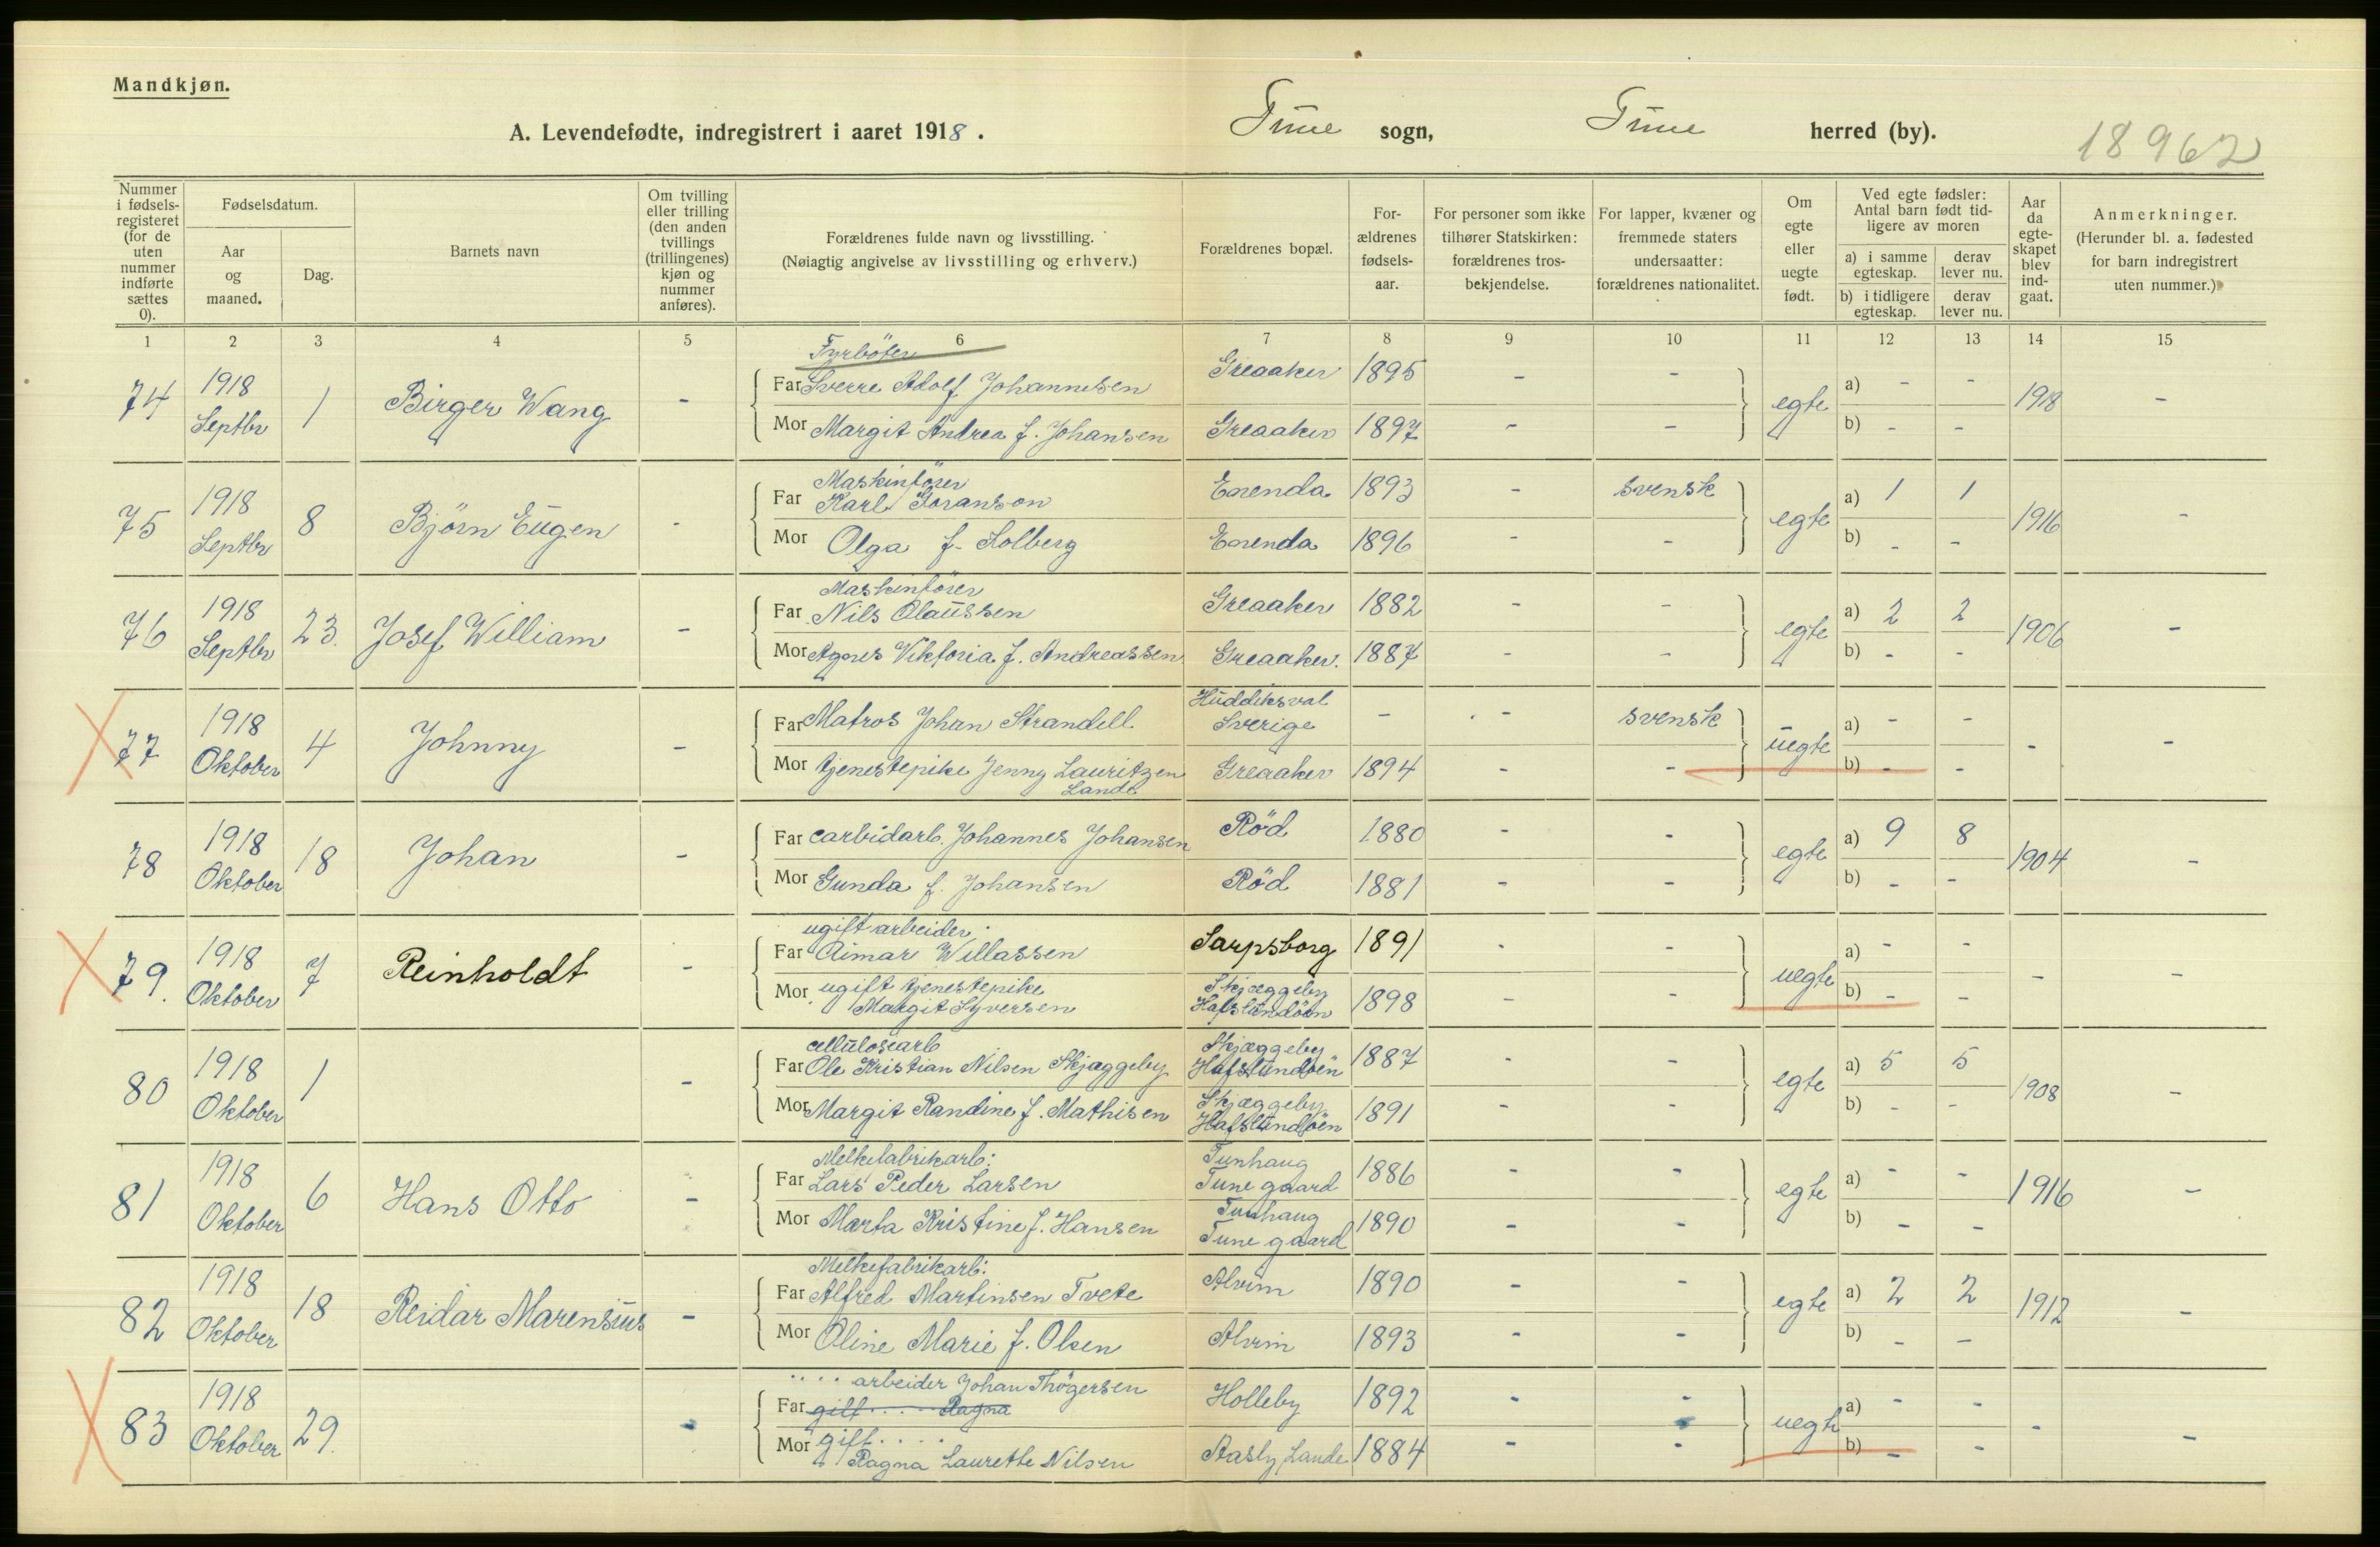 Mandkjøn.
A. Levendefødte, indregistrert i aaret 1918. Tune sogn, Tune herred (by). 18962
Nummer i fødselsregisteret (for de uten nummer indførte sættes 0). Fødselsdatum. Aar og maaned. Dag. Barnets navn Om tvilling eller trilling (den anden tvillings (trillingenes) kjøn og nummer anføres). Forældrenes fulde navn og livsstilling. (Nøiagtig angivelse av livsstilling og erhverv.) Forældrenes bopæl. Forældrenes fødselsaar. For personer som ikke tilhører Statskirken: forældrenes trosbekjendelse. For lapper, kvæner og fremmede staters undersaatter: forældrenes nationalitet. Om egte eller uegte født. Ved egte fødsler: Antal barn født tidligere av moren a) i samme egteskap. derav lever nu. b) i tidligere egteskap. derav lever nu. Aar da egteskapet blev indgaat. Anmerkninger. (Herunder bl. a. fødested for barn indregistrert uten nummer.)
1 2 3 4 5 6 7 8 9 10 11 12 13 14 15
Fyrböter
74 1918 Septbr 1 Birger Wang - Far Sverre Adolf Johannesen Greaaker 1895 - - egte a) - - 1918 -
Mor Margit Andrea f. Johansen Greaaker 1897 - - b) - -
Maskinförer
75 1918 Septbr 8 Björn Eugen - Far Karl Goranson Enenda 1893 - svensk egte a) 1 1 1916 -
Mor Olga f. Solberg Enenda 1896 - - b) - -
Maskinförer
76 1918 Septbr 23. Josef William - Far Nils Olaussen Greaaker 1882 - - egte a) 2 2 1906 -
Mor Agnes Viktoria f. Andreassen Greaaker. 1887 - - b) - -
77 1918 Oktober 4 Johnny - Far Matros Johan Strandell Huddiksval Sverige - - svensk uegte a) - - - -
Mor tjenestepike Jenny Lauritzen Lande Greaaker 1894 - - b) - -
78 1918 Oktober 18 Johan - Far carbidarb. Johannes Johansen Röd 1880 - - egte a) 9 8 1904 -
Mor Gunda f. Johansen Röd 1881 - - b) - -
ugift arbeider
79. 1918 Oktober 7 Reinholdt - Far Aimar Willassen Sarpsborg 1891 - - uegte a) - - - -
Mor ugift tjenestepike Margit Syversen Skjæggeby Hafslundöen 1898 - - b) - -
cellulosearb
80 1918 Oktober 1 - Far Ole Kristian Nilsen Skjæggeby Skjæggeby Hafslundöen 1887 - - egte a) 5 5 1908 -
Mor Margit Randine f. Mathisen Skjæggeby Hafslundöen 1891 - - b) - -
Melkefabrikarb:
81 1918 Oktober 6 Hans Otto - Far Lars Peder Larsen Tunhaug Tune gaard 1886 - - egte a) - - 1916 -
Mor Marta Kristine f. Hansen Tunhaug Tune gaard 1890 - - b) - -
Melkefabrikarb:
82 1918 Oktober 18 Reidar Marensius - Far Alfred Martinsen Tvete Alvim 1890 - - egte a) 2 2 1912 -
Mor Oline Marie f. Olsen Alvim 1893 - - b) - -
.... arbeider Johan Thögersen
83 1918 Oktober 29. - Far gift ..... Ragna Holleby 1892 - - uegte a) - - - -
Mor gift .... Ragna Laurette Nilsen Aasly Lande 1884 - - b) - -